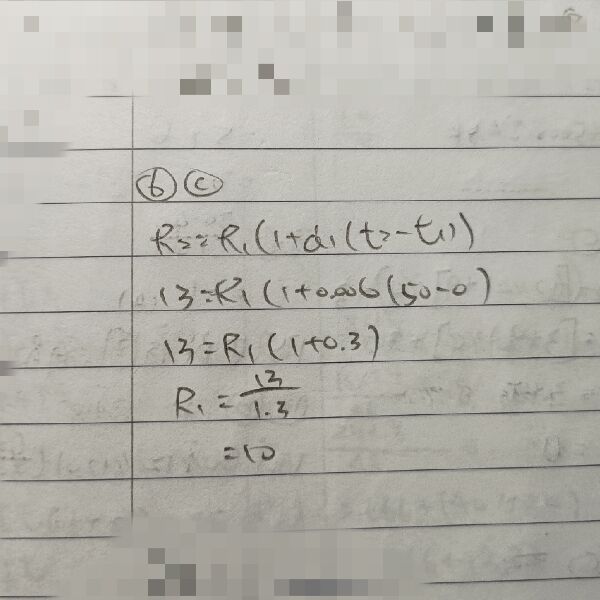 ⑥ ⓒ
R₂=R₁(1+α₁(t₂-t₁))
13=R₁(1+0.006(50-0)
13=R₁(1+0.3)
R₁=13/1.3
=10